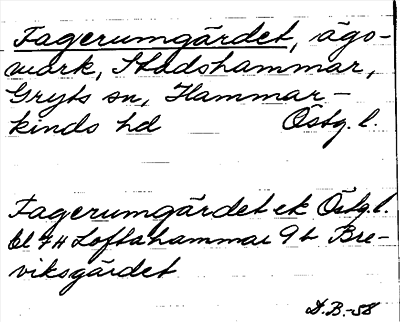 Fagerumgärdet, ägo-
mark, Stadshammar,
Gryts sn, Hammar-
kinds hd Östg. l.
Fagerumgärdet ek Östg. l.
bl 74 Loftahammar 9b Bre-
viksgärdet
D.B.-58